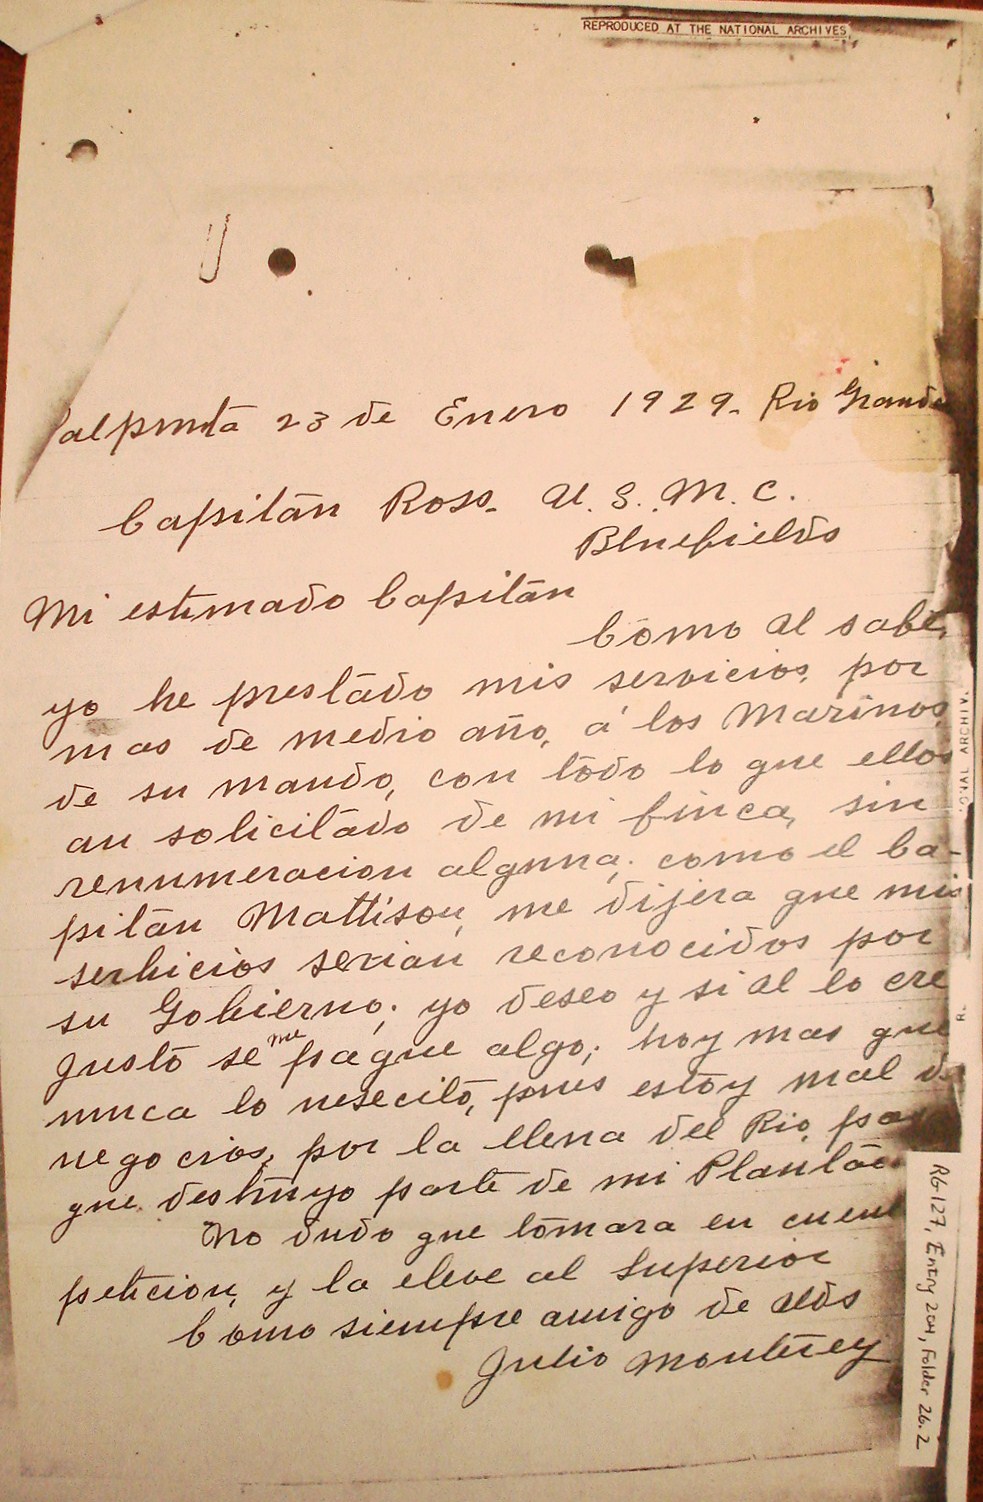 REPRODUCED AT THE NATIONAL ARCHIVES
23 de Enero 1929. Rio Grande
Capitán Ross. U. S. M. C.
Bluefields
Mi estimado Capitán
Como Ud sabe,
yo he prestado mis servicios, por
mas de medio año, á los Marinos,
de su mando, con todo lo que ellos
an solicitado de mi finca, sin
renumeracion alguna; como el Ca-
pitán Mattison, me dijera que mis
serbicios serian reconocidos por
su Gobierno; yo deseo y si Ud lo cre
justo se me pague algo; hoy mas que
nunca lo nesecito, pues estoy mal de
negocios, por la llena del Rio,
que destruyo parte de mi
No dudo que tomara en
peticion, y la eleve al Superior
Como siempre amigo de Uds
Julio Monterey
RG127, Entry 204, Folder 26.2